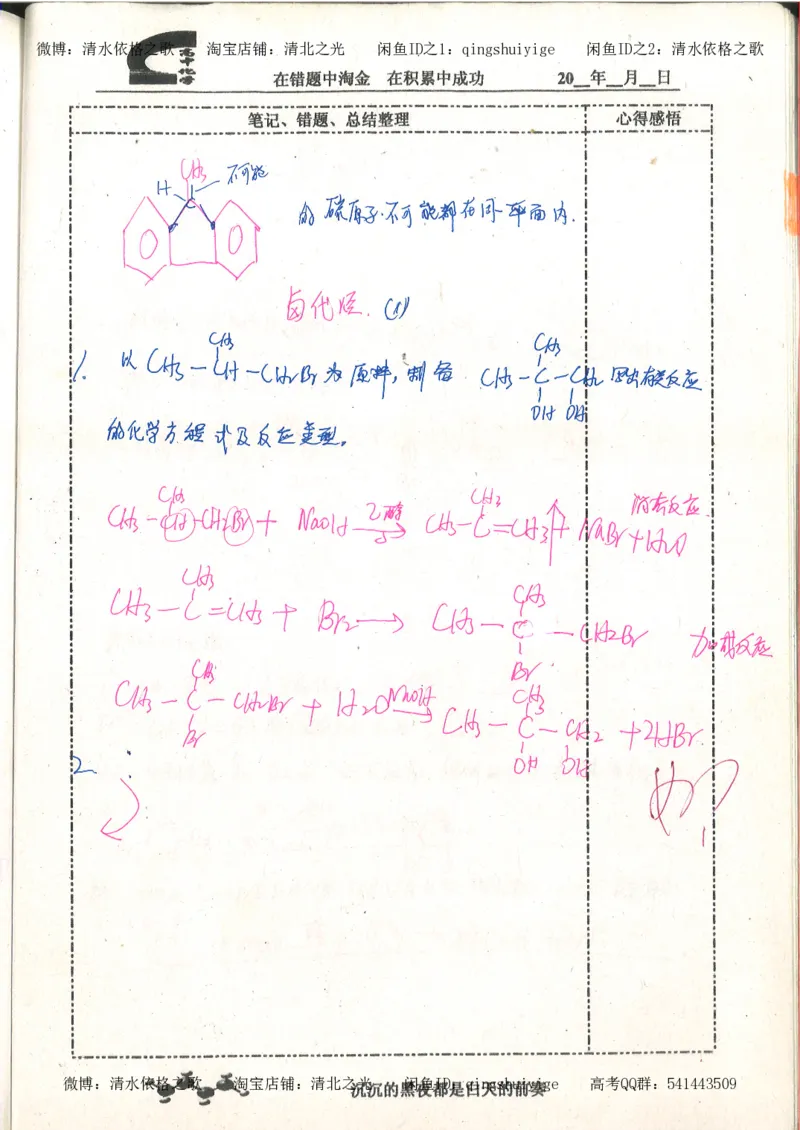 微博：清水依格之歌 淘宝店铺：清北之光 闲鱼ID之1：qingshuiyige 闲鱼ID之2：清水依格之歌
高中化学
在错题中淘金 在积累中成功 20__年__月__日
笔记、错题、总结整理 心得感悟
CH3 不可能
H C
的碳原子不可能都在同一平面内.
卤代烃. (1)
CH3 CH3
1. 以 CH3-CH-CH2Br 为原料, 制备 CH3-C-CH2 写出有关反应
OH OH
的化学方程式及反应类型。
CH3 CH3 消去反应
CH3-CH-CH2Br + NaOH 乙醇→ CH3-C=CH3↑ + NaBr + H2O
△
CH3 CH3
CH3-C=CH3 + Br2 → CH3-C-CH2Br 加成反应
Br
CH3 CH3
CH3-C-CH2Br + H2O NaOH→ CH3-C-CH2 + 2HBr
Br OH OH
2.
微博：清水依格之歌 淘宝店铺：清北之光 闲鱼ID：qingshuiyige 高考QQ群：541443509
沉沉的黑夜都是白天的前奏